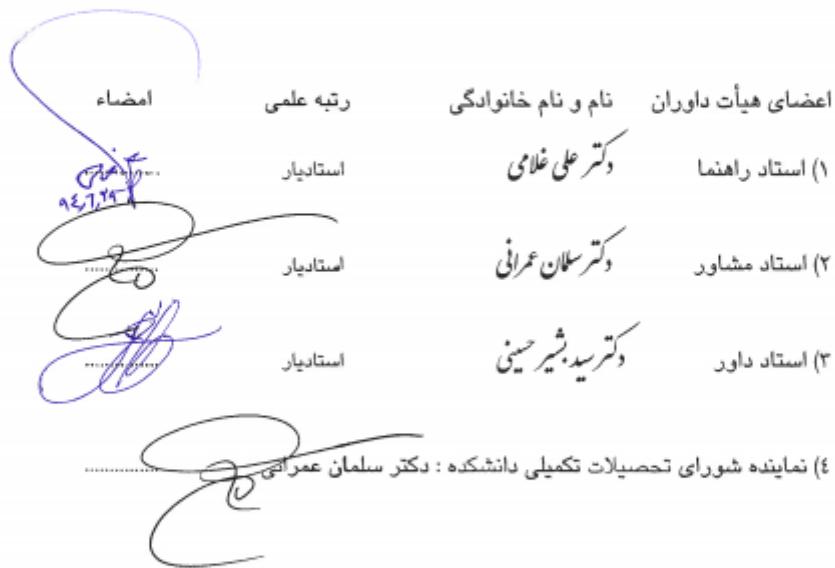 اعضای هیأت داوران نام و نام خانوادگی رتبه علمی امضاء
۱) استاد راهنما دکتر علی غلامی استادیار ............
۹۴,۶,۲۹
۲) استاد مشاور دکتر سلمان عمرانی استادیار ............
۳) استاد داور دکتر سید بشیر حسینی استادیار ............
٤) نماینده شورای تحصیلات تکمیلی دانشکده : دکتر سلمان عمرانی ............